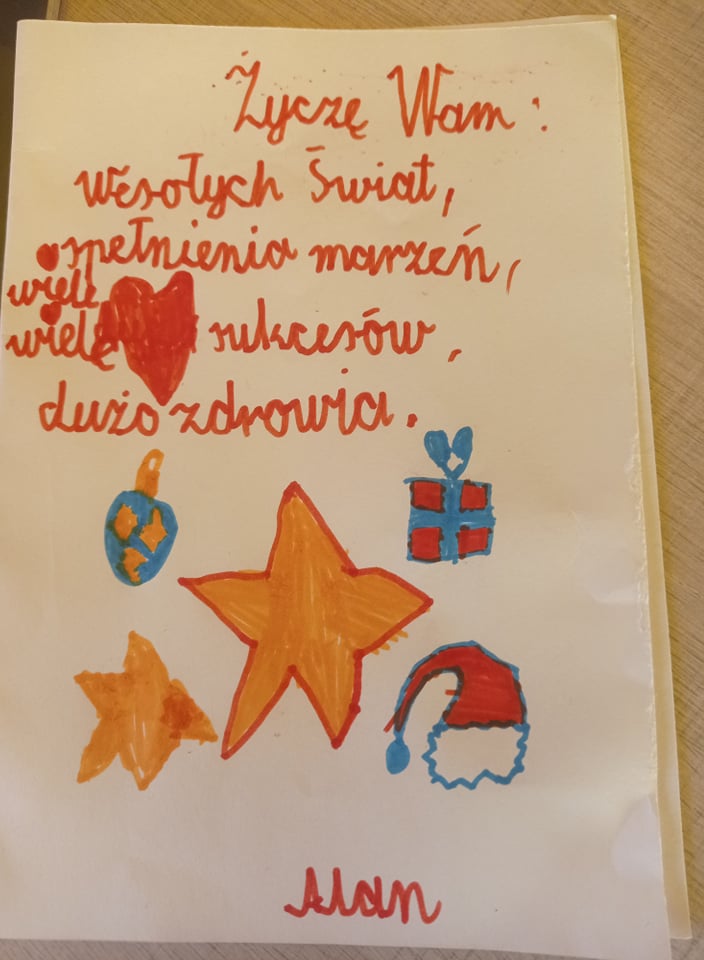 Życzę Wam:
Wesołych Świat,
spełnienia marzeń,
wiele
wiele sukcesów,
dużo zdrowia.
Alan